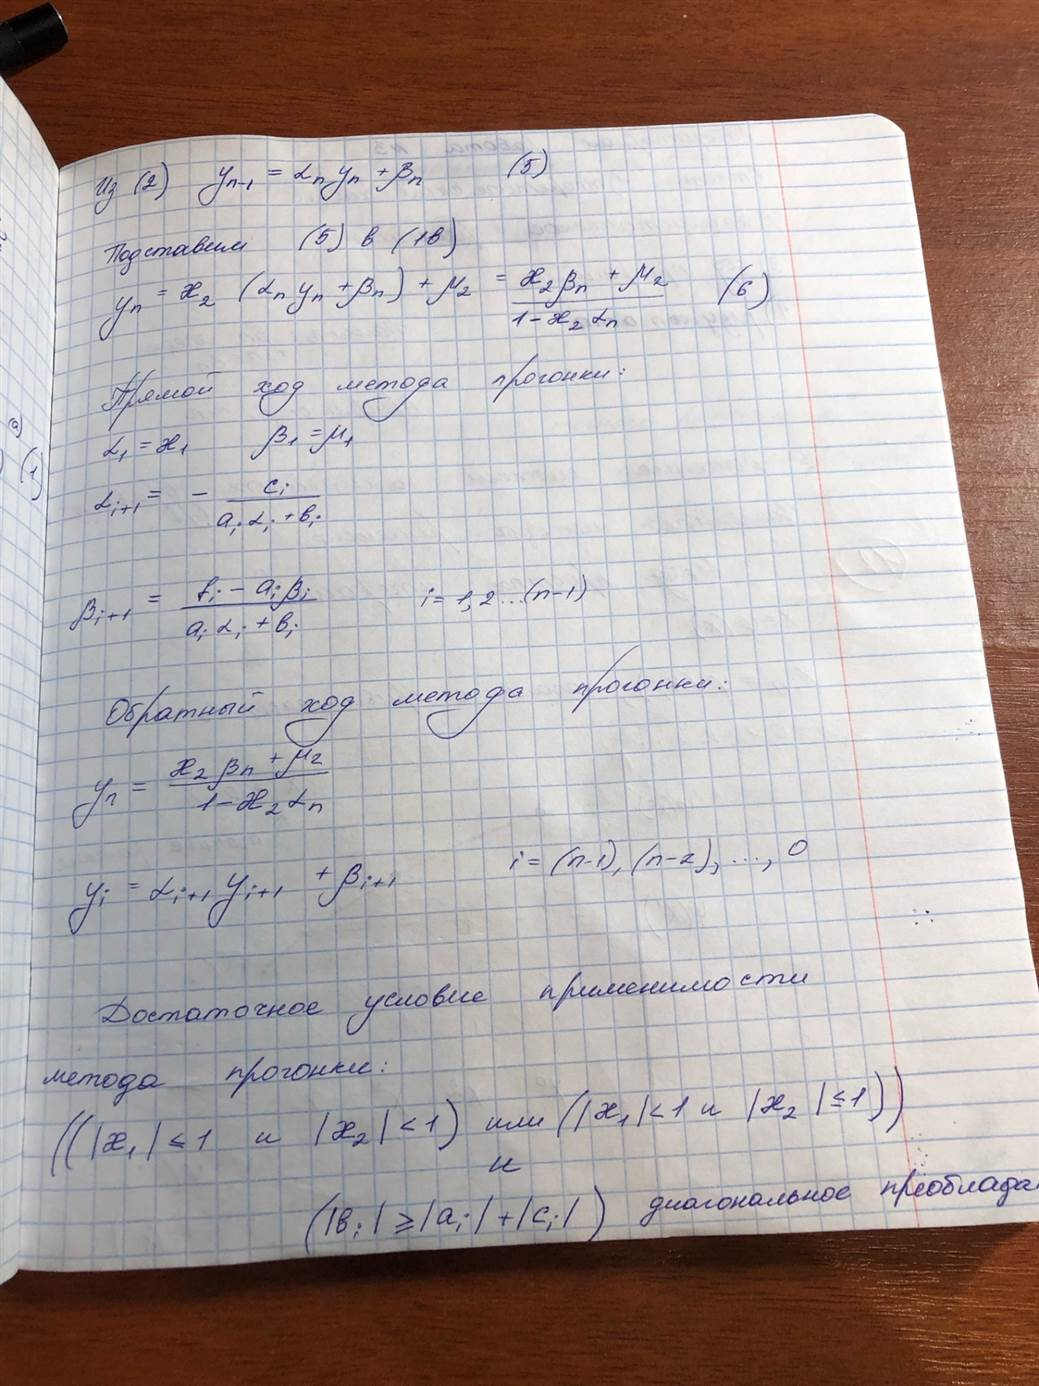 Из (2) yₙ₋₁ = αₙ yₙ + βₙ (5)
Подставим (5) в (1в)
yₙ = ϰ₂ (αₙ yₙ + βₙ) + μ₂ = (ϰ₂ βₙ + μ₂) / (1 - ϰ₂ αₙ) (6)
Прямой ход метода прогонки:
α₁ = ϰ₁ β₁ = μ₁
αᵢ₊₁ = - cᵢ / (aᵢ αᵢ + bᵢ)
βᵢ₊₁ = (fᵢ - aᵢ βᵢ) / (aᵢ αᵢ + bᵢ) i = 1, 2 ... (n-1)
Обратный ход метода прогонки:
yₙ = (ϰ₂ βₙ + μ₂) / (1 - ϰ₂ αₙ)
yᵢ = αᵢ₊₁ yᵢ₊₁ + βᵢ₊₁ i = (n-1), (n-2), ..., 0
Достаточное условие применимости
метода прогонки:
((|ϰ₁| ≤ 1 и |ϰ₂| < 1) или (|ϰ₁| < 1 и |ϰ₂| ≤ 1))
и
(|bᵢ| ≥ |aᵢ| + |cᵢ|) диагональное преоблада
а)
(1)